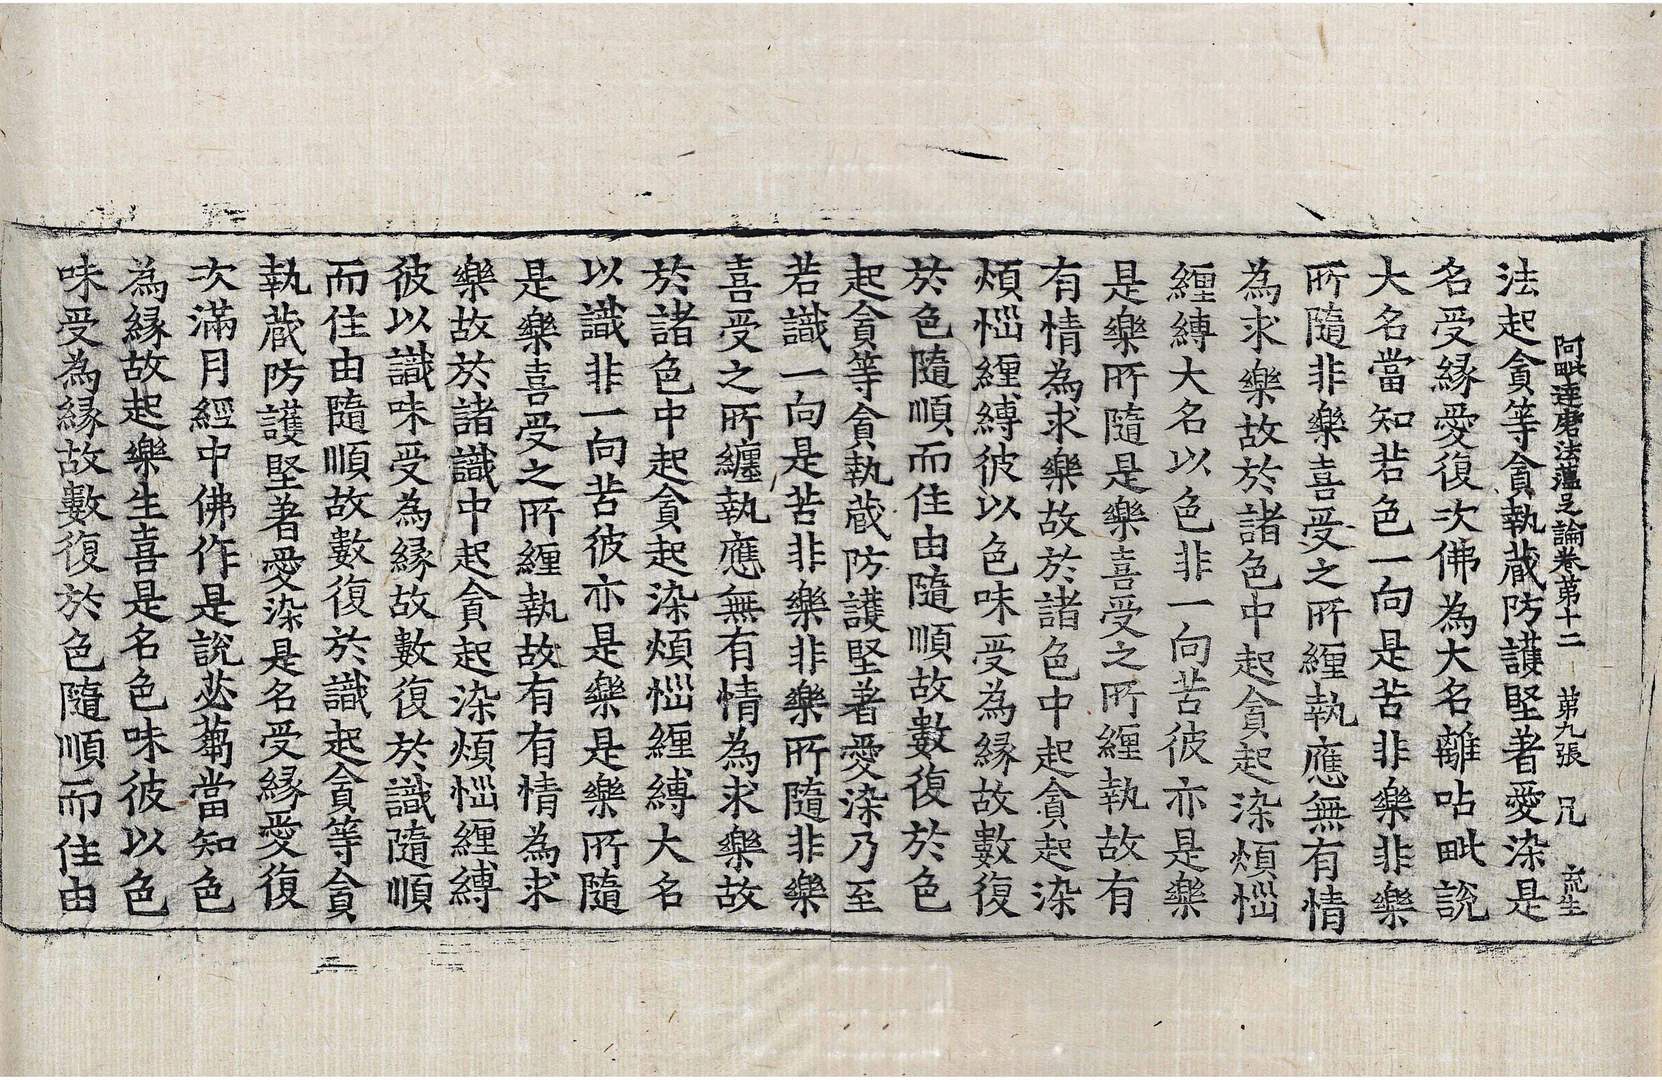 阿毗達磨法蘊足論卷第十二 第九張 兄
法起貪等貪執蔵防護堅著愛染是
名受緣愛復次佛為大名離呫毗說
大名當知若色一向是苦非樂非樂
所隨非樂喜受之所纏執應無有情
為求樂故於諸色中起貪起染煩惱
纏縛大名以色非一向苦彼亦是樂
是樂所隨是樂喜受之所纏執故有
有情為求樂故於諸色中起貪起染
煩惱纏縛彼以色味受為緣故數復
於色隨順而住由隨順故數復於色
起貪等貪執蔵防護堅著愛染乃至
若識一向是苦非樂非樂所隨非樂
喜受之所纏執應無有情為求樂故
於諸色中起貪起染煩惱纏縛大名
以識非一向苦彼亦是樂是樂所隨
是樂喜受之所纏執故有有情為求
樂故於諸識中起貪起染煩惱纏縛
彼以識味受為緣故數復於識隨順
而住由隨順故數復於識起貪等貪
執蔵防護堅著愛染是名受緣愛復
次滿月經中佛作是說苾蒭當知色
為緣故起樂生喜是名色味彼以色
味受為緣故數復於色隨順而住由